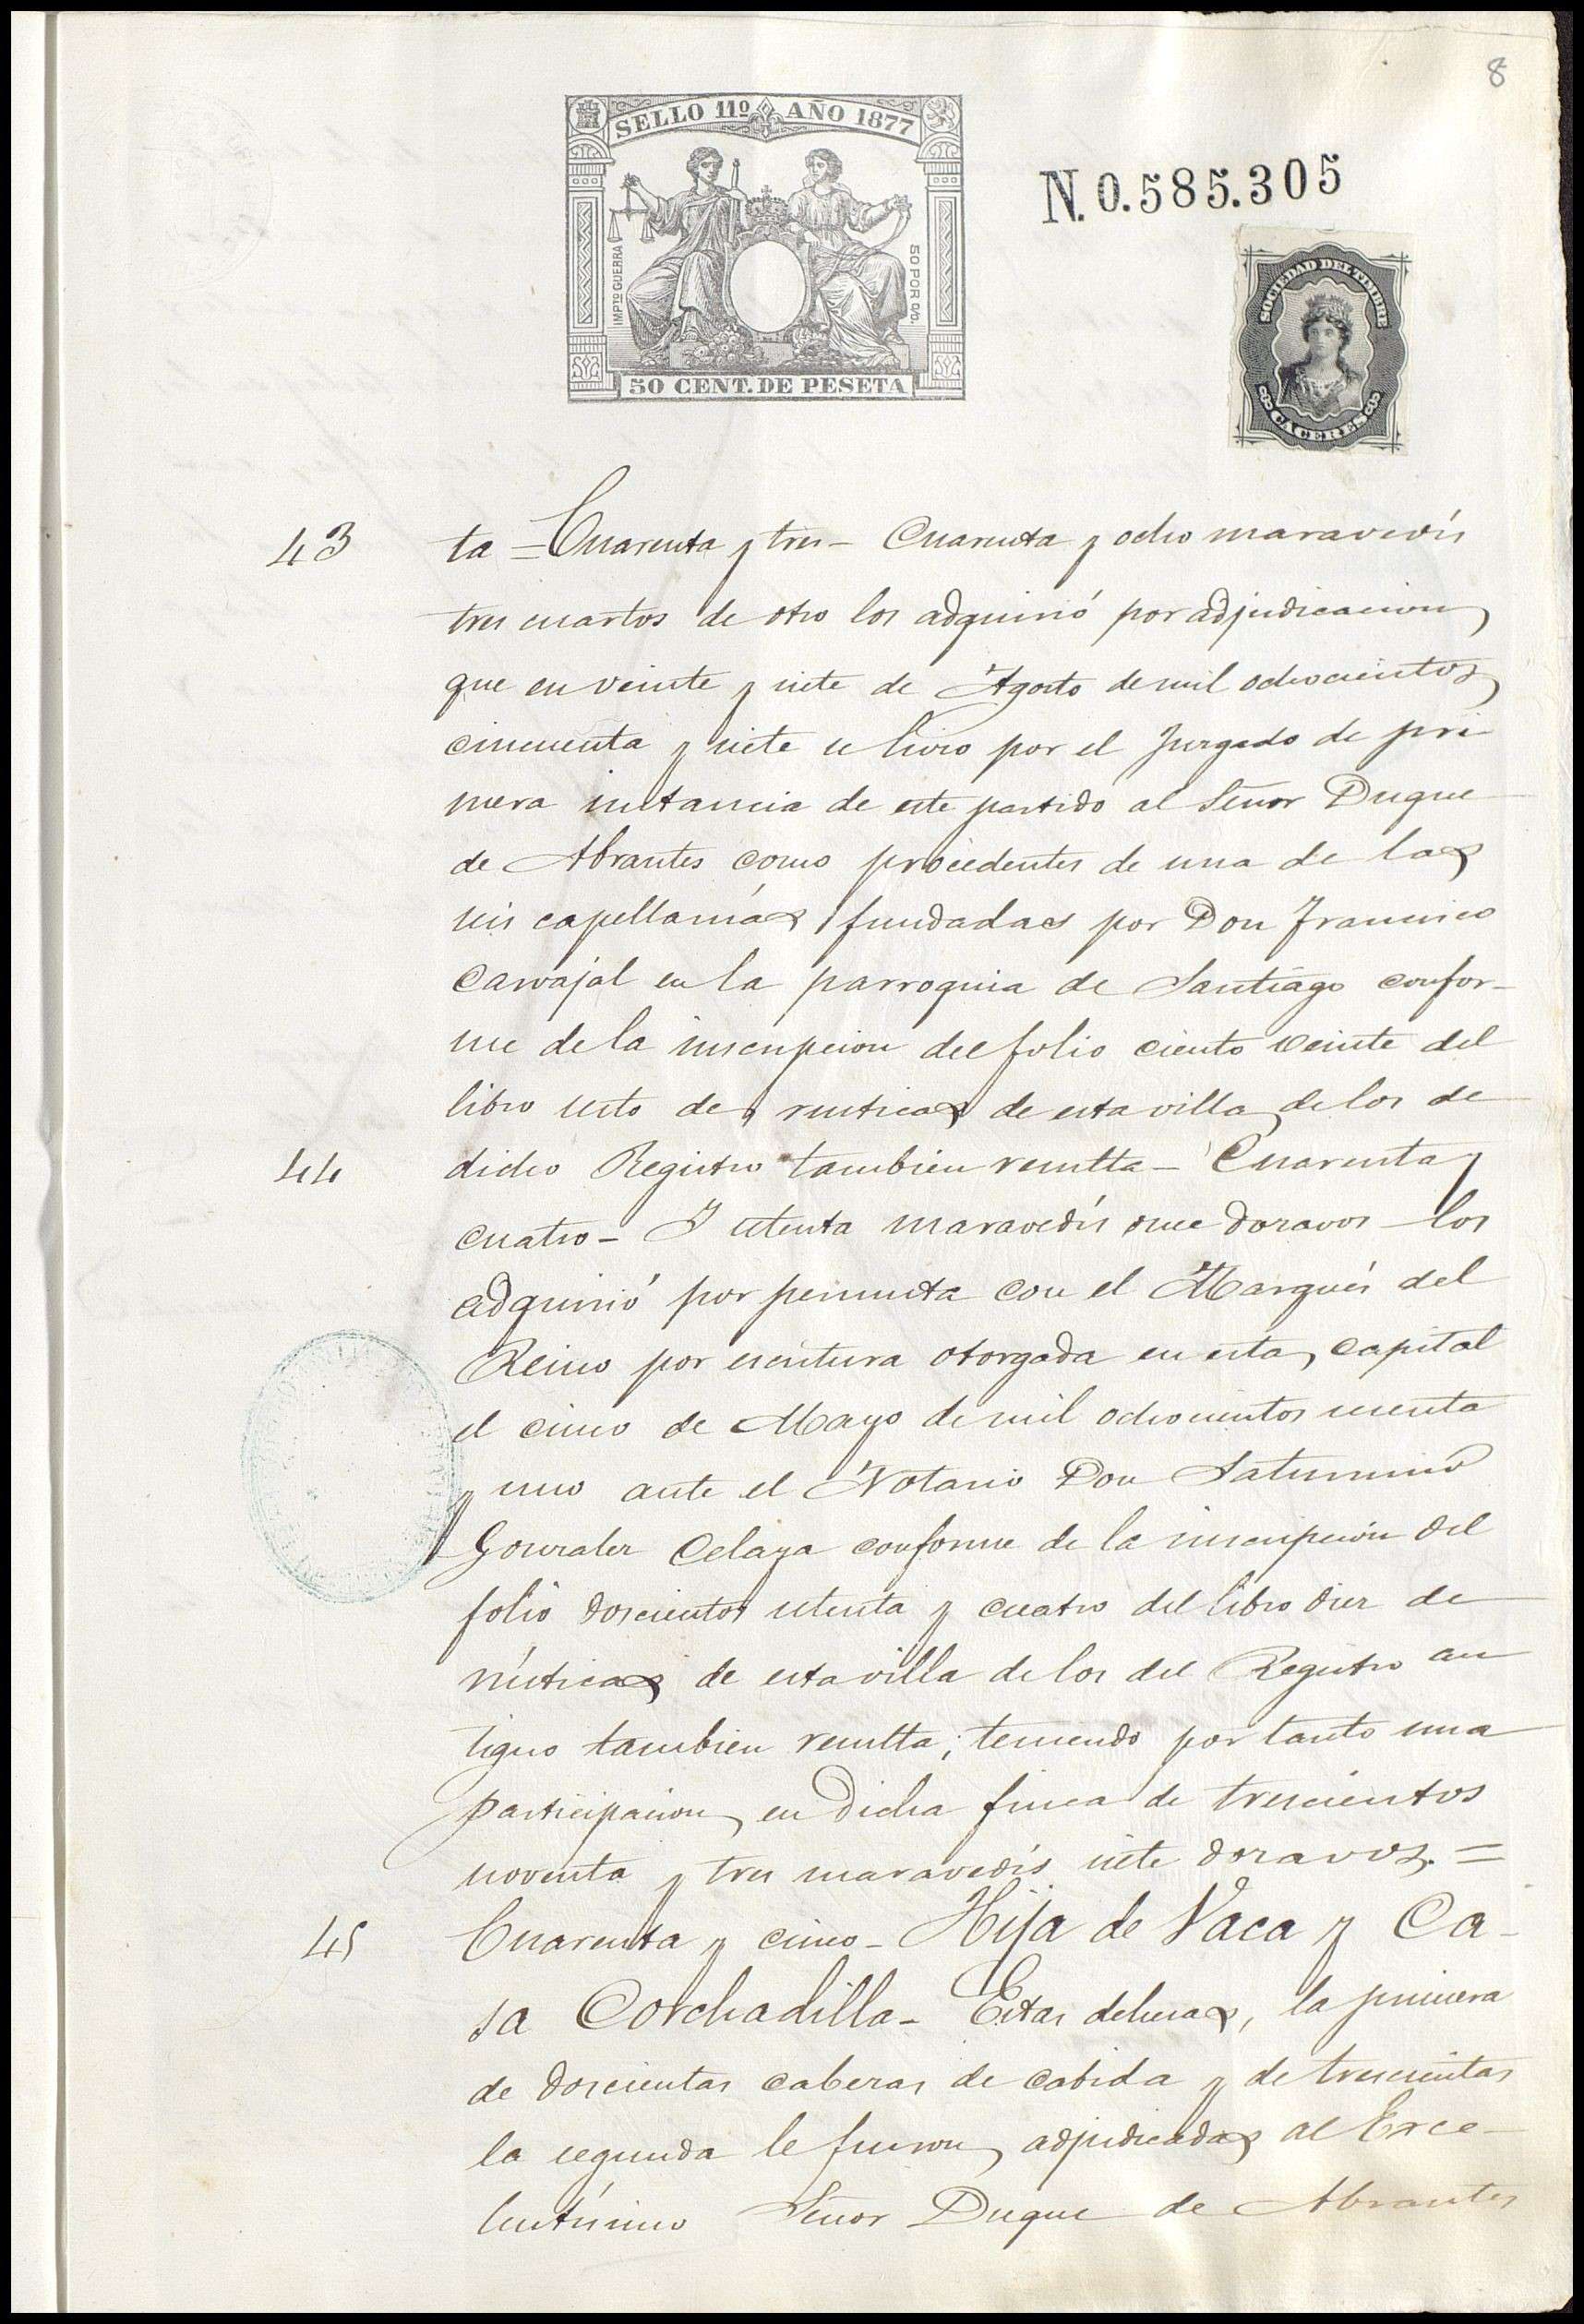 8
SELLO 11º AÑO 1877
IMPTO GUERRA
50 POR 0/0.
50 CENT. DE PESETA
N. 0.585.305
SOCIEDAD DEL TIMBRE
CACERES
43 ta = Cuarenta y tres - Cuarenta y ocho maravedís
tres cuartos de otro los adquirió por adjudicacion
que en veinte y siete de Agosto de mil ochocientos
cincuenta y siete se hizo por el Juzgado de pri-
mera instancia de este partido al Señor Duque
de Abrantes como procedentes de una de las
seis capellanías fundadas por Don Francisco
Carvajal en la parroquia de Santiago confor-
me de la inscripcion del folio ciento veinte del
libro sesto de rusticas de esta villa de los de
44 dicho Registro tambien resulta - Cuarenta y
cuatro - Y setenta maravedís once dozavos los
adquirió por permuta con el Marqués del
Reino por escritura otorgada en esta capital
el cinco de Mayo de mil ochocientos sesenta
y uno ante el Notario Don Saturnino
Gonzalez Celaya conforme de la inscripción del
folio doscientos setenta y cuatro del libro diez de
rústicas de esta villa de los del Registro an
tiguo tambien resulta; teniendo por tanto una
participacion en dicha finca de trescientos
noventa y tres maravedís siete dozavos. =
45 Cuarenta y cinco - Hija de Vaca y Ca-
sa Corchadilla - Estas dehesas, la primera
de doscientas cabezas de cabida y de trescientas
la segunda le fueron adjudicadas al Exce-
lentísimo Señor Duque de Abrantes